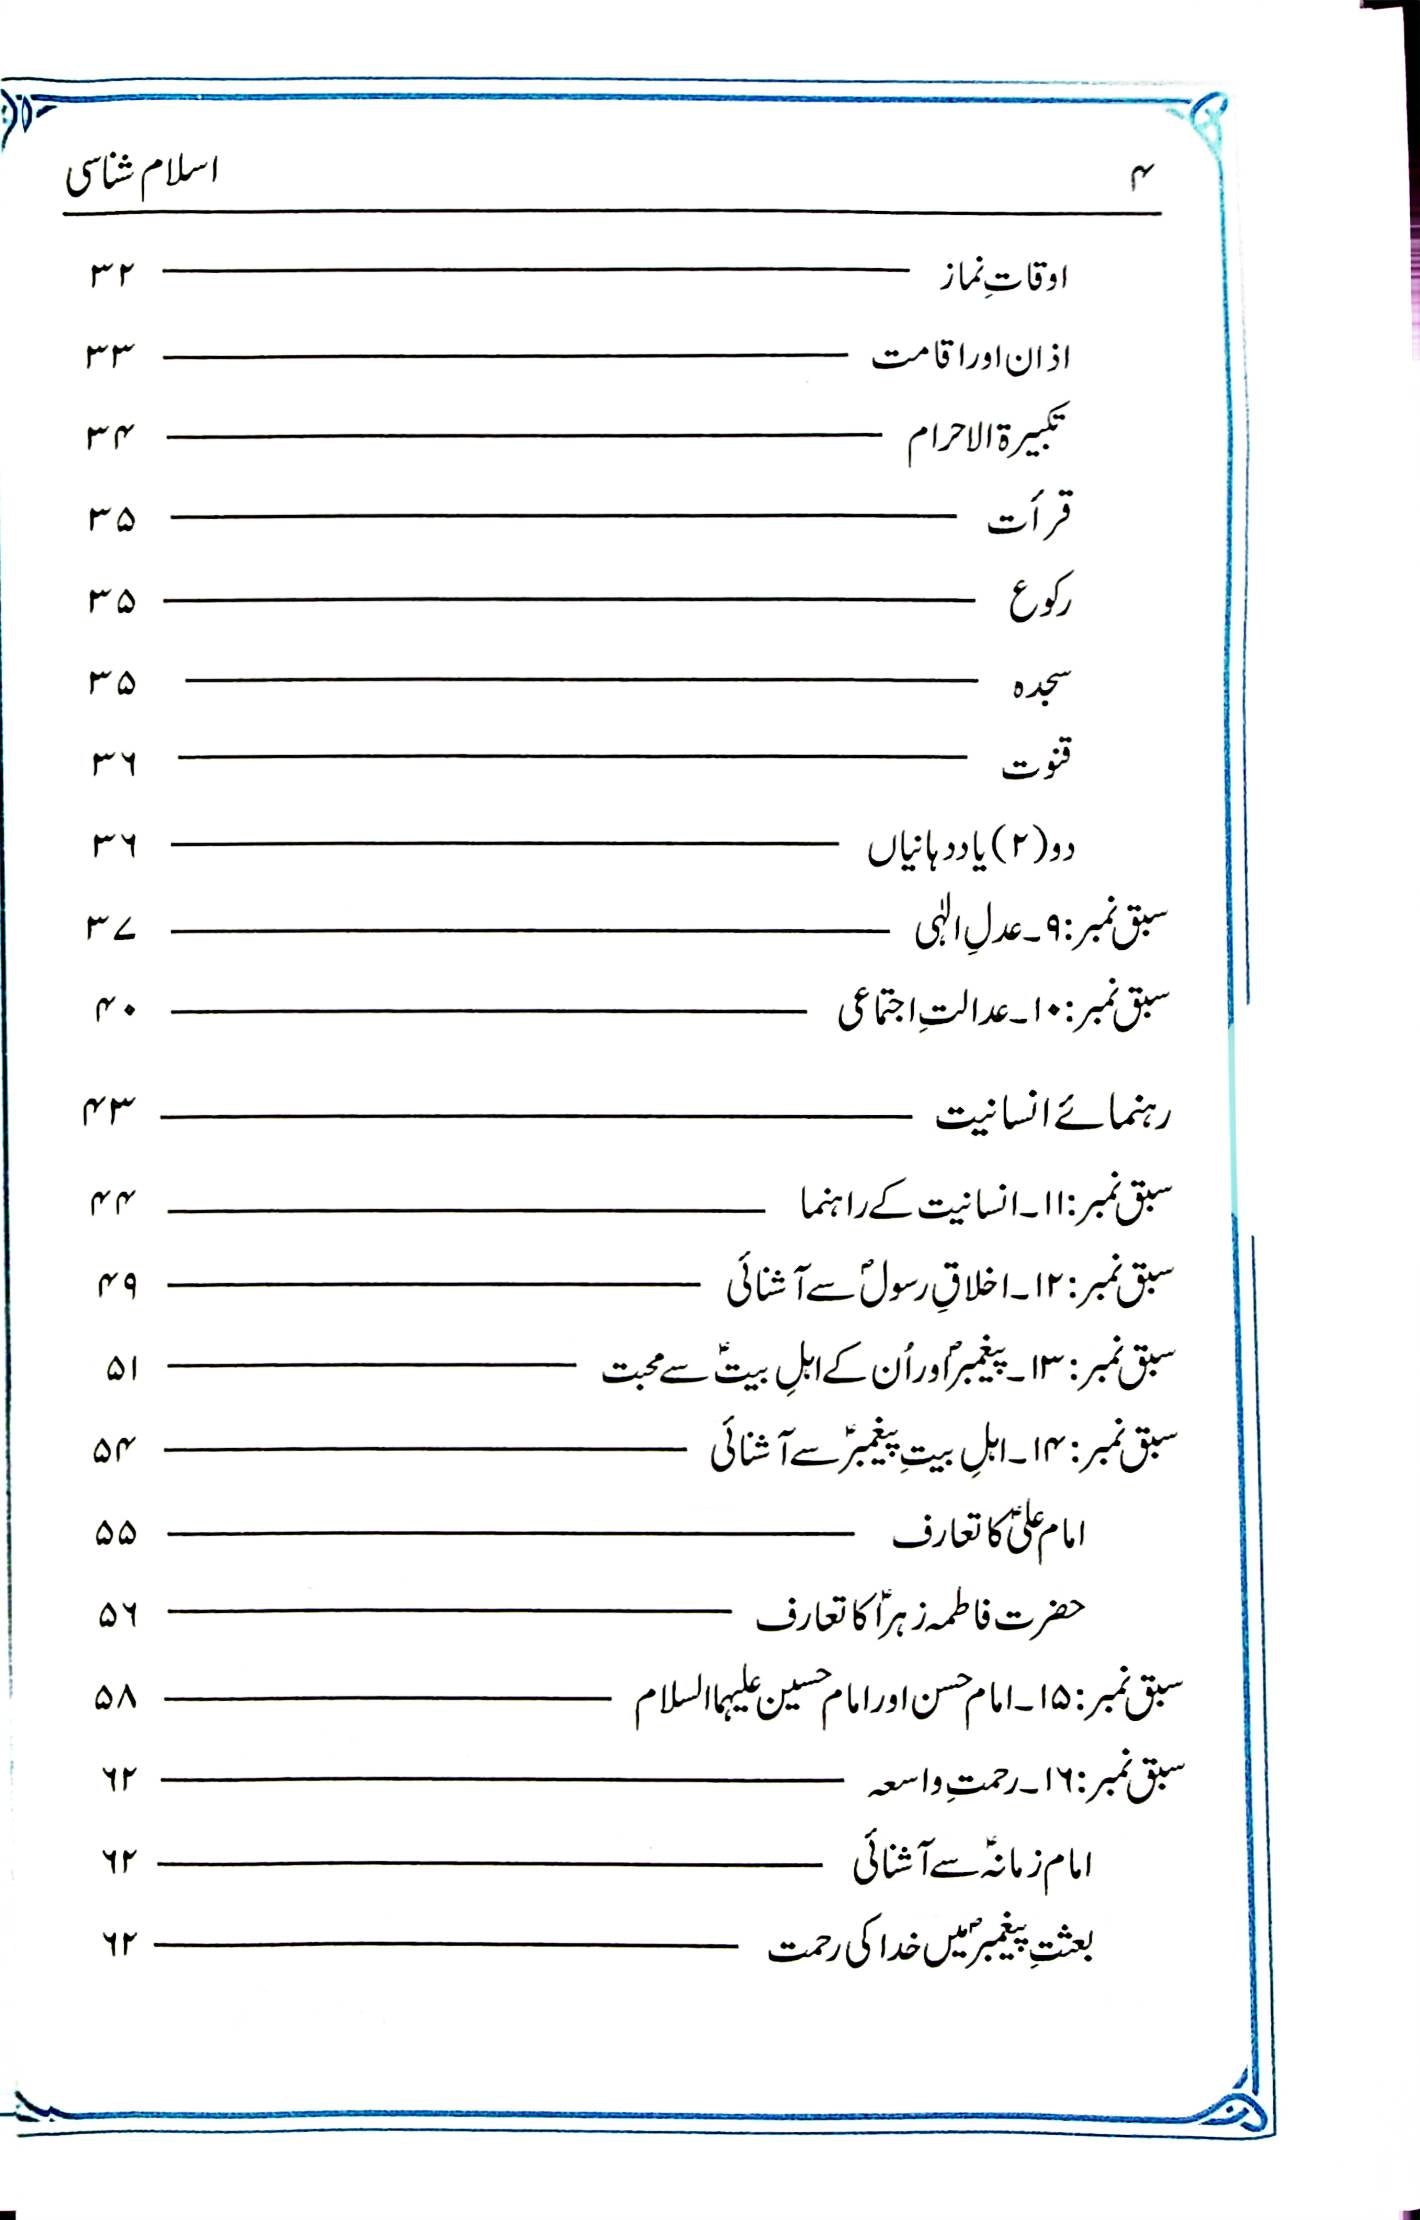 ۴ اسلام شناسی
اوقاتِ نماز ۳۲
اذان اور اقامت ۳۳
تکبیرۃ الاحرام ۳۴
قرأت ۳۵
رکوع ۳۵
سجدہ ۳۵
قنوت ۳۶
دو (۲) یاددہانیاں ۳۶
سبق نمبر: ۹۔ عدلِ الٰہی ۳۷
سبق نمبر: ۱۰۔ عدالتِ اجتماعی ۴۰
رہنمائے انسانیت ۴۳
سبق نمبر: ۱۱۔ انسانیت کے راہنما ۴۴
سبق نمبر: ۱۲۔ اخلاقِ رسولؐ سے آشنائی ۴۹
سبق نمبر: ۱۳۔ پیغمبرؐ اور اُن کے اہلِ بیتؑ سے محبت ۵۱
سبق نمبر: ۱۴۔ اہلِ بیتِ پیغمبرؑ سے آشنائی ۵۴
امام علیؑ کا تعارف ۵۵
حضرت فاطمہ زہراؑ کا تعارف ۵۶
سبق نمبر: ۱۵۔ امام حسن اور امام حسین علیہما السلام ۵۸
سبق نمبر: ۱۶۔ رحمتِ واسعہ ۶۲
امام زمانہؑ سے آشنائی ۶۲
بعثتِ پیغمبرؐ میں خدا کی رحمت ۶۲